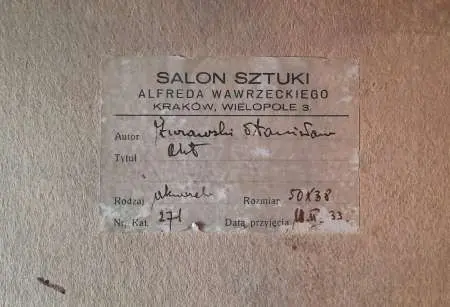 SALON SZTUKI
ALFREDA WAWRZECKIEGO
KRAKÓW, WIELOPOLE 3.
Autor Żurawski Stanisław
Tytuł Akt
Rodzaj akwarela Rozmiar 50X38
Nr. Kat. 271 Datą przyjęcia 33.